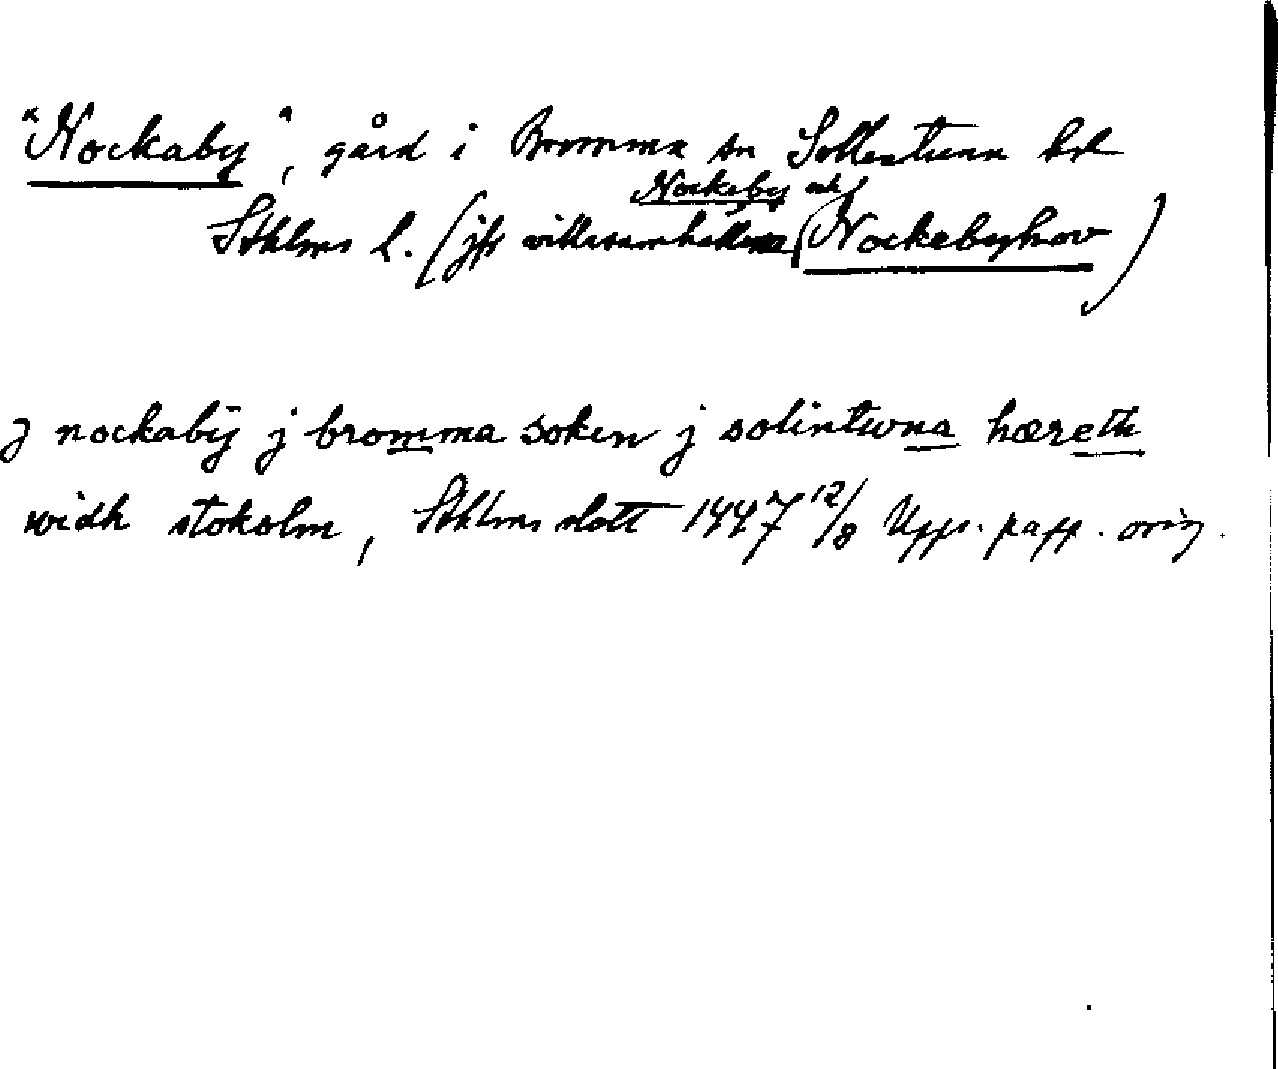 "Nockaby", gård i Bromma sn Sollentuna hd
Sthlms l. (jfr villasamhällena Nockeby och Nockebyhov)
J nockabÿ j bromma soken j solintwna hæreth
widh stokolm, Sthlms slott 1447 12/8 Upps. papp. orig.